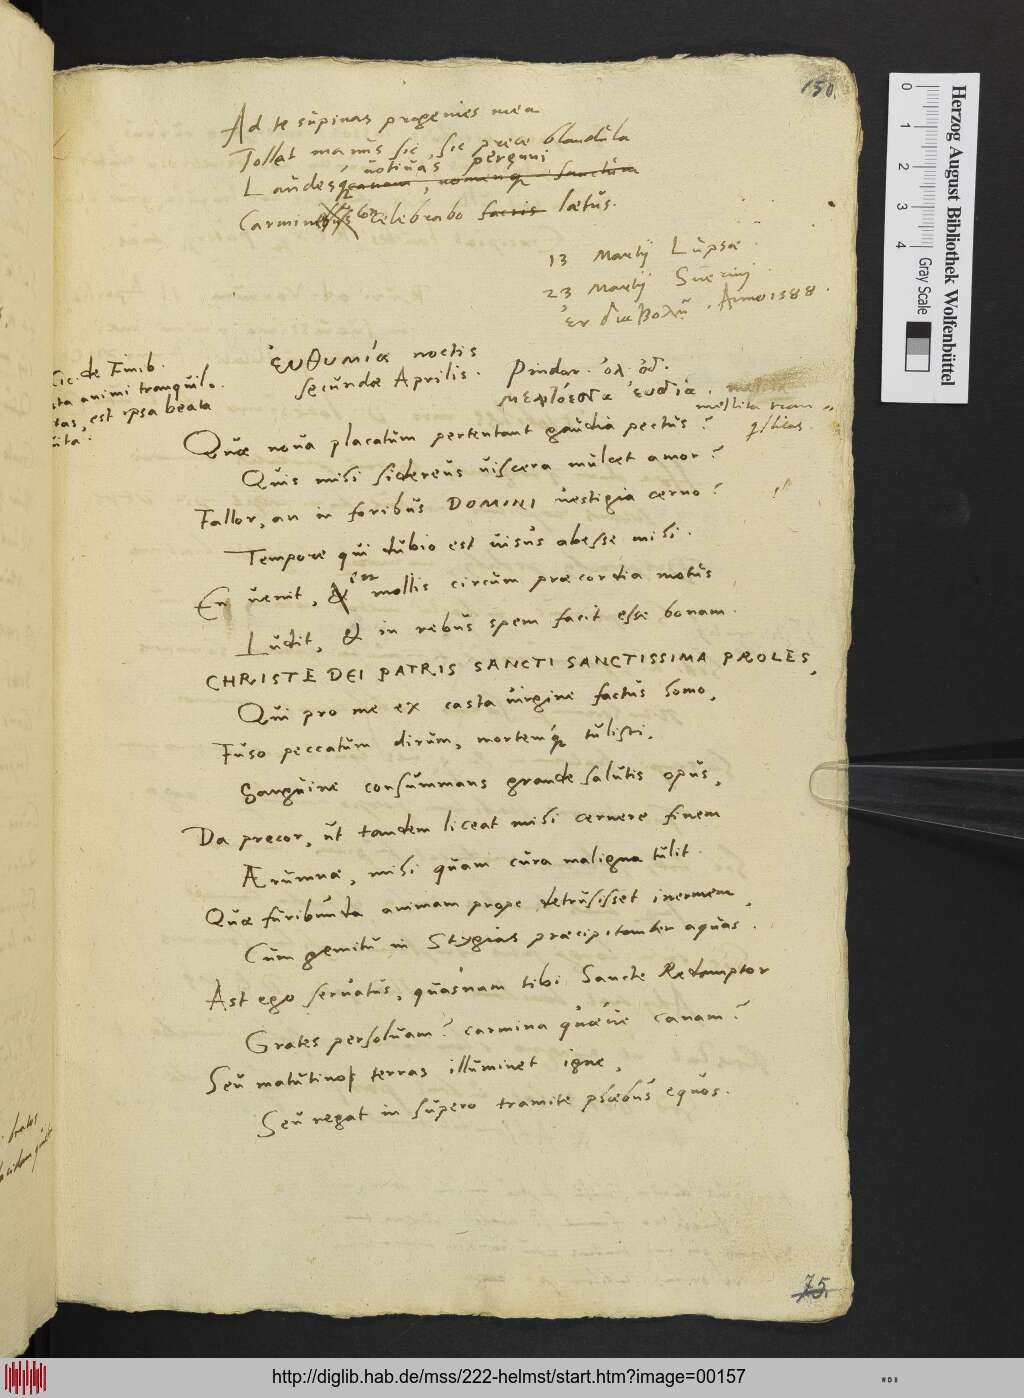 150.
Ad te supinas progenies mea
Tollet manus sic, sic prece blandula
votivas perenni
Laudesq́; canam, nomenq́; sanctum
Carminibus celebrabo sacris lætus.
13 Martij Lupsæ
23 Martij Suerini
ἐν διαβολῇ. Anno 1588.
Cic. de Finib.
ita animi tranquil
tas, est ipsa beata
uita.
ἐυθυμία noctis
secundæ Aprilis.
Pindar. ὀλ. ὠδ.
μελιτόεσσα ἐυδία.
mellita tran
q̃llitas.
Quæ noua placatum pertentant gaudia pectus?
Quis mihi sidereus uiscera mulcet amor?
Fallor, an in foribus DOMINI uestigia cerno?
Tempore qui dubio est uisus abesse mihi.
En uenit, & en mollis circum præcordia motus
Ludit, & in rebus spem facit esse bonam.
CHRISTE DEI PATRIS SANCTI SANCTISSIMA PROLES,
Qui pro me ex casta uirgine factus homo,
Fuso peccatum dirum, mortemq́; tulisti,
Sanguine consummans grande salutis opus,
Da precor, ut tandem liceat mihi cernere finem
Ærumnæ, mihi quam cura maligna tulit.
Quæ furibunda animam prope detrusisset inermem,
Cum gemitu in Stygias præcipitanter aquas.
Ast ego seruatus, quasnam tibi Sancte Redemptor
Grates persoluam? carmina quæue canam?
Seu matutinos terras illuminet igne,
Seu regat in supero tramite phœbus equos.
75.
Herzog August Bibliothek Wolfenbüttel
0 1 2 3 4 Gray Scale
http://diglib.hab.de/mss/222-helmst/start.htm?image=00157